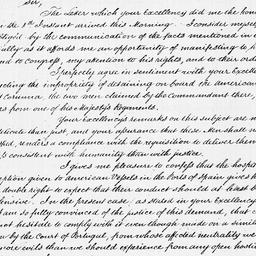 Sir,
The Letter which your Excellency did me the hono
the 8th Instant arrived this Morning. I consider mysel
by the communication of the facts mentioned in
as it affords me an opportunity of manifesting to
to congress, my attention to his rights, and to their orde
I perfectly agree in sentiment with your Excelle
the impropriety of detaining on board the american
the two men claimed by the Commandant there,
from one of his Majesty's Regiments.
Your Excellencys remarks on this subject are n
than just, and your assurance that these Men shall n
renders a compliance with the requisition to deliver them
consistent with humanity than with justice.
It gives me pleasure to confess that the hospit
given to american Vessels in the Ports of Spain gives
double right to expect that their conduct should at least b
In the present case as stated in your Excellency
am so fully convinced of the justice of this demand, that
hesitate to comply with it even though made on a simil
by the Court of Portugal, from whose affected neutrality we
more evils than we should experience from any open hosti